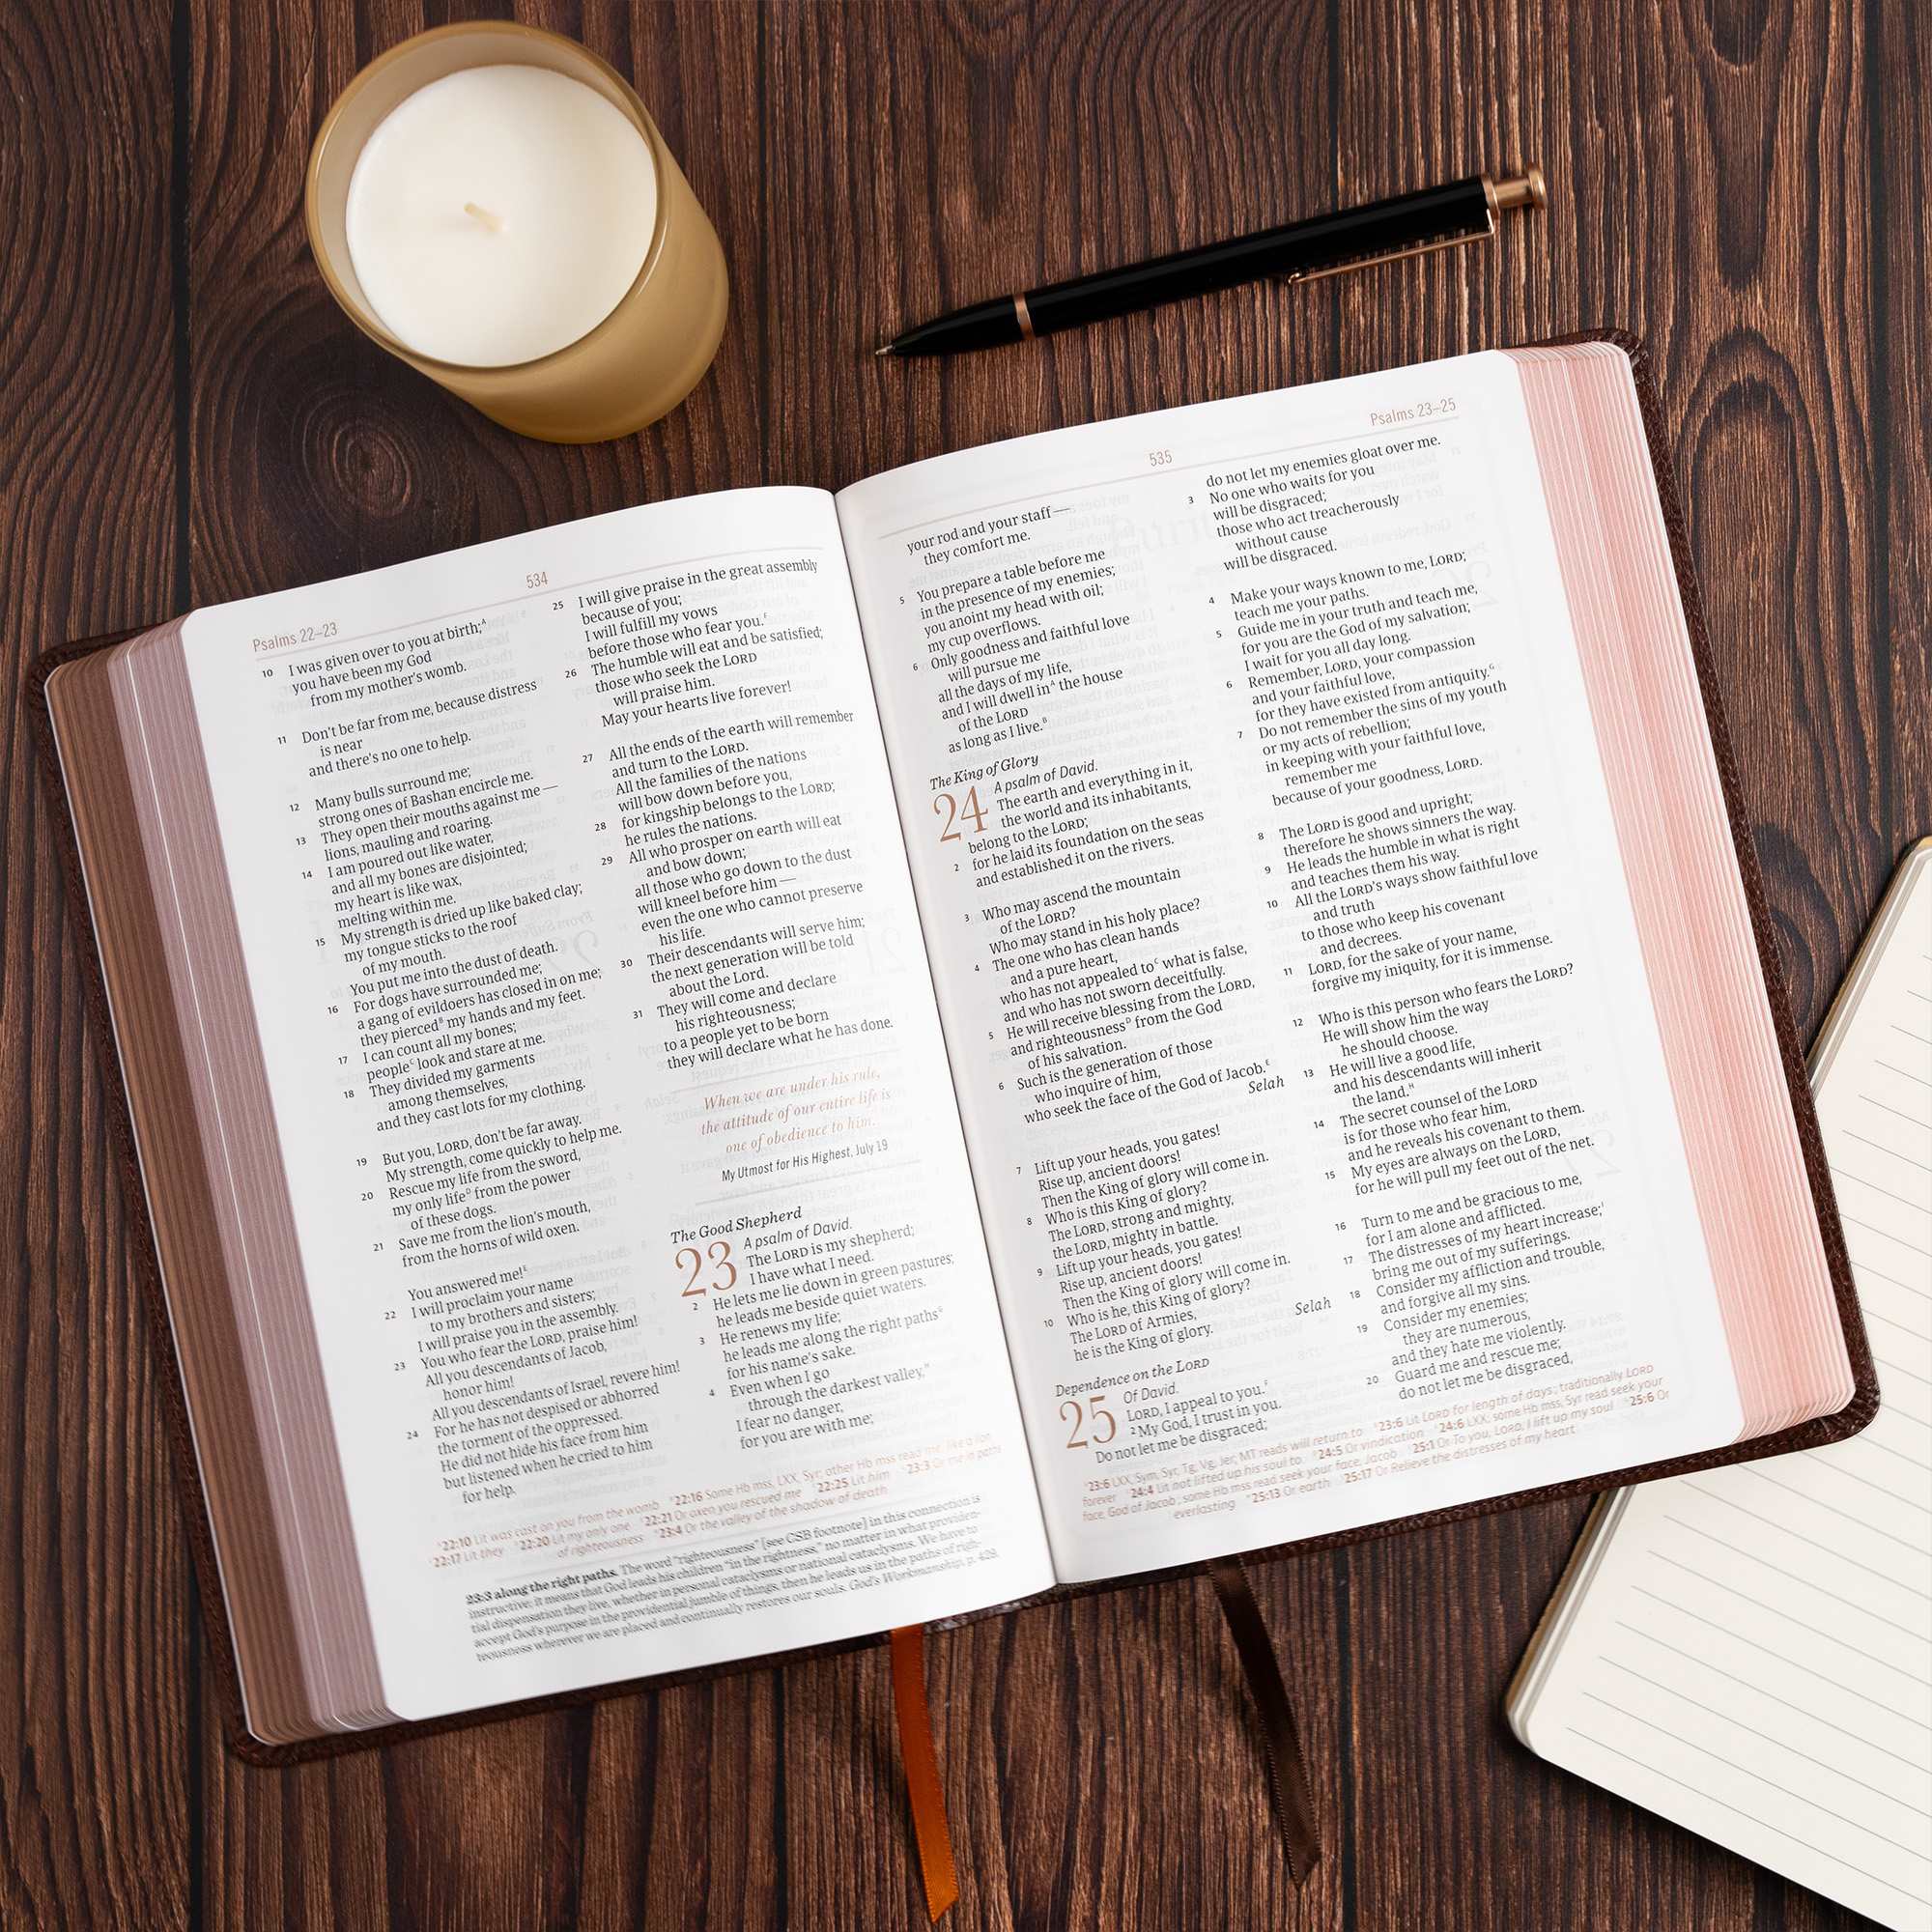 Psalms 22–23
534
10 I was given over to you at birth;A
you have been my God
from my mother's womb.
11 Don't be far from me, because distress
is near
and there's no one to help.
12 Many bulls surround me;
strong ones of Bashan encircle me.
13 They open their mouths against me —
lions, mauling and roaring.
14 I am poured out like water,
and all my bones are disjointed;
my heart is like wax,
melting within me.
15 My strength is dried up like baked clay;
my tongue sticks to the roof
of my mouth.
You put me into the dust of death.
16 For dogs have surrounded me;
a gang of evildoers has closed in on me;
they piercedB my hands and my feet.
17 I can count all my bones;
peopleC look and stare at me.
18 They divided my garments
among themselves,
and they cast lots for my clothing.
19 But you, LORD, don't be far away.
My strength, come quickly to help me.
20 Rescue my life from the sword,
my only lifeD from the power
of these dogs.
21 Save me from the lion's mouth,
from the horns of wild oxen.
You answered me!E
22 I will proclaim your name
to my brothers and sisters;
I will praise you in the assembly.
23 You who fear the LORD, praise him!
All you descendants of Jacob,
honor him!
All you descendants of Israel, revere him!
24 For he has not despised or abhorred
the torment of the oppressed.
He did not hide his face from him
but listened when he cried to him
for help.
25 I will give praise in the great assembly
because of you;
I will fulfill my vows
before those who fear you.F
26 The humble will eat and be satisfied;
those who seek the LORD
will praise him.
May your hearts live forever!
27 All the ends of the earth will remember
and turn to the LORD.
All the families of the nations
will bow down before you,
28 for kingship belongs to the LORD;
he rules the nations.
29 All who prosper on earth will eat
and bow down;
all those who go down to the dust
will kneel before him —
even the one who cannot preserve
his life.
30 Their descendants will serve him;
the next generation will be told
about the Lord.
31 They will come and declare
his righteousness;
to a people yet to be born
they will declare what he has done.
When we are under his rule,
the attitude of our entire life is
one of obedience to him.
My Utmost for His Highest, July 19
The Good Shepherd
23 A psalm of David.
The LORD is my shepherd;
I have what I need.
2 He lets me lie down in green pastures;
he leads me beside quiet waters.
3 He renews my life;
he leads me along the right pathsG
for his name's sake.
4 Even when I go
through the darkest valley,H
I fear no danger,
for you are with me;
A22:10 Lit was cast on you from the womb B22:16 Some Hb mss, LXX, Syr; other Hb mss read me; like a lion
C22:17 Lit they D22:20 Lit my only one E22:21 Or oxen you rescued me F22:25 Lit him G23:3 Or me in paths
of righteousness H23:4 Or the valley of the shadow of death
23:3 along the right paths. The word "righteousness" [see CSB footnote] in this connection is
instructive; it means that God leads his children "in the rightness," no matter in what providen-
tial dispensation they live, whether in personal cataclysms or national cataclysms. We have to
accept God's purpose in the providential jumble of things, then he leads us in the paths of righ-
teousness wherever we are placed and continually restores our souls. God's Workmanship, p. 429.
535
Psalms 23–25
your rod and your staff —
they comfort me.
5 You prepare a table before me
in the presence of my enemies;
you anoint my head with oil;
my cup overflows.
6 Only goodness and faithful love
will pursue me
all the days of my life,
and I will dwell inA the house
of the LORD
as long as I live.B
The King of Glory
24 A psalm of David.
The earth and everything in it,
the world and its inhabitants,
belong to the LORD;
2 for he laid its foundation on the seas
and established it on the rivers.
3 Who may ascend the mountain
of the LORD?
Who may stand in his holy place?
4 The one who has clean hands
and a pure heart,
who has not appealed toC what is false,
and who has not sworn deceitfully.
5 He will receive blessing from the LORD,
and righteousnessD from the God
of his salvation.
6 Such is the generation of those
who inquire of him,
who seek the face of the God of Jacob.E
Selah
7 Lift up your heads, you gates!
Rise up, ancient doors!
Then the King of glory will come in.
8 Who is this King of glory?
The LORD, strong and mighty,
the LORD, mighty in battle.
9 Lift up your heads, you gates!
Rise up, ancient doors!
Then the King of glory will come in.
10 Who is he, this King of glory?
The LORD of Armies,
he is the King of glory. Selah
Dependence on the LORD
25 Of David.
LORD, I appeal to you.F
2 My God, I trust in you.
Do not let me be disgraced;
do not let my enemies gloat over me.
3 No one who waits for you
will be disgraced;
those who act treacherously
without cause
will be disgraced.
4 Make your ways known to me, LORD;
teach me your paths.
5 Guide me in your truth and teach me,
for you are the God of my salvation;
I wait for you all day long.
6 Remember, LORD, your compassion
and your faithful love,
for they have existed from antiquity.G
7 Do not remember the sins of my youth
or my acts of rebellion;
in keeping with your faithful love,
remember me
because of your goodness, LORD.
8 The LORD is good and upright;
therefore he shows sinners the way.
9 He leads the humble in what is right
and teaches them his way.
10 All the LORD's ways show faithful love
and truth
to those who keep his covenant
and decrees.
11 LORD, for the sake of your name,
forgive my iniquity, for it is immense.
12 Who is this person who fears the LORD?
He will show him the way
he should choose.
13 He will live a good life,
and his descendants will inherit
the land.H
14 The secret counsel of the LORD
is for those who fear him,
and he reveals his covenant to them.
15 My eyes are always on the LORD,
for he will pull my feet out of the net.
16 Turn to me and be gracious to me,
for I am alone and afflicted.
17 The distresses of my heart increase;I
bring me out of my sufferings.
18 Consider my affliction and trouble,
and forgive all my sins.
19 Consider my enemies;
they are numerous,
and they hate me violently.
20 Guard me and rescue me;
do not let me be disgraced,
A23:6 LXX, Sym, Syr, Tg, Vg, Jer; MT reads will return to B23:6 Lit LORD for length of days; traditionally LORD
forever C24:4 Lit not lifted up his soul to D24:5 Or vindication E24:6 LXX; some Hb mss, Syr read seek your
face, God of Jacob; some Hb mss read seek your face, Jacob F25:1 Or To you, LORD, I lift up my soul G25:6 Or
everlasting H25:13 Or earth I25:17 Or Relieve the distresses of my heart